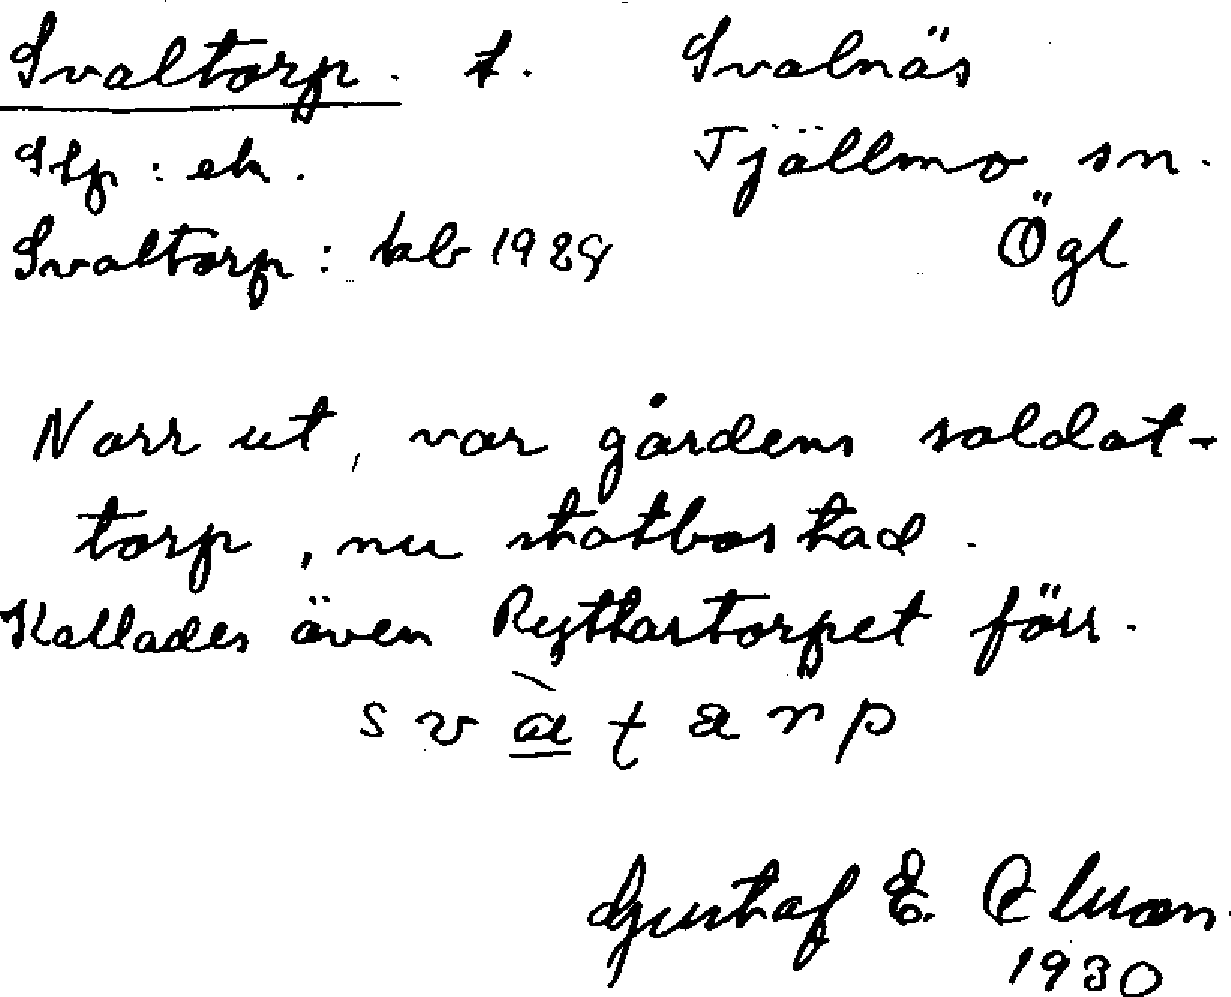 Svaltorp. t. Svalnäs
Stp: ek. Tjällmo sn.
Svaltorp: kb 1929 Ögl
Norr ut, var gårdens soldat-
torp, nu statbostad.
Kallades även Ryttartorpet förr.
svàtarp
Gustaf E.
1930